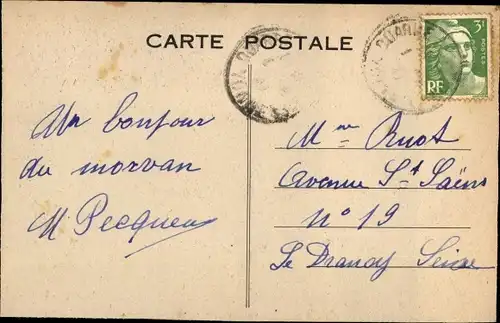 CARTE POSTALE
QUARRE
3F
POSTES
RF
Un bonjour
du morvan
M Pecqueu
Mme Ruot
Avenue St Saëns
N° 19
Le Drancy Seine